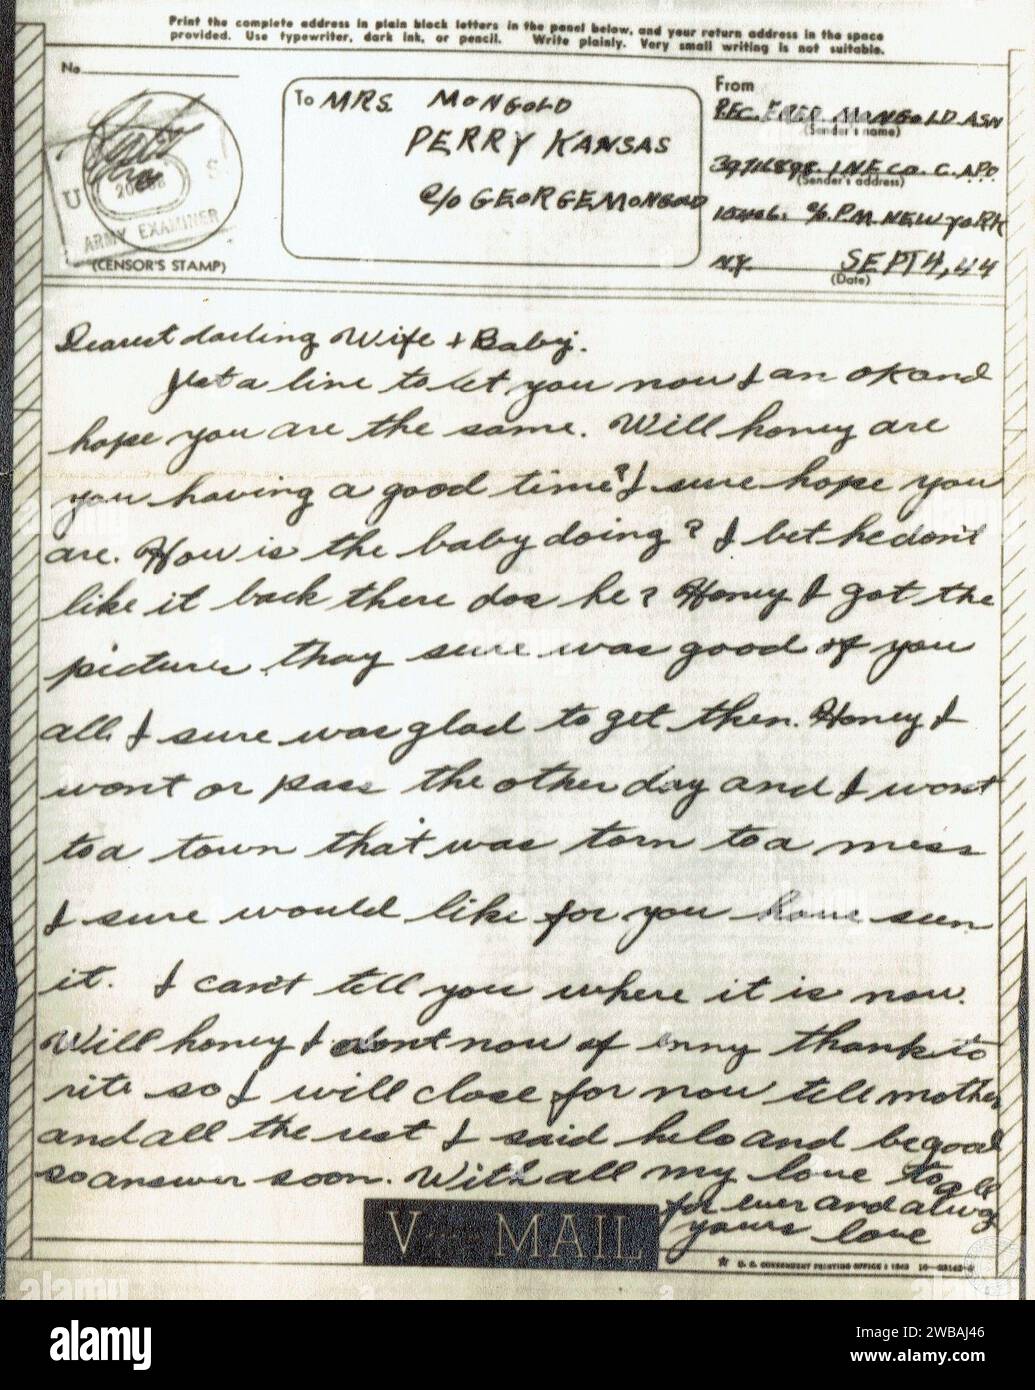 Print the complete address in plain block letters in the panel below, and your return address in the space
provided. Use typewriter, dark ink, or pencil. Write plainly. Very small writing is not suitable.
No.
To MRS. MONGOLD
PERRY KANSAS
C/O GEORGE MONGOLD
From
PFC. FRED MONGOLD ASN
(Sender's name)
39716898. INF. CO. C. APO
(Sender's address)
15406. C/O P.M. NEW YORK
N.Y. SEPT 4, 44
(Date)
U S
ARMY EXAMINER
(CENSOR'S STAMP)
Dearest darling Wife + Baby.
Just a line to let you now I an ok and
hope you are the same. Will honey are
you having a good time? I sure hope you
are. How is the baby doing? I bet he don't
like it back there dos he? Honey I got the
pictures. thay sure was good of you
all. I sure was glad to get then. Honey I
wont or pass the other day and I wont
to a town that was torn to a mess
I sure would like for you have seen
it. I can't tell you where it is now.
Will honey I dont now of inny thank to
rite so I will close for now tell mother
and all the rest I said helo and be good
so answer soon. With all my love to all
for ever and alwy
yours love
V MAIL
★ U. S. GOVERNMENT PRINTING OFFICE : 1943
alamy
Image ID: 2WBAJ46
www.alamy.com